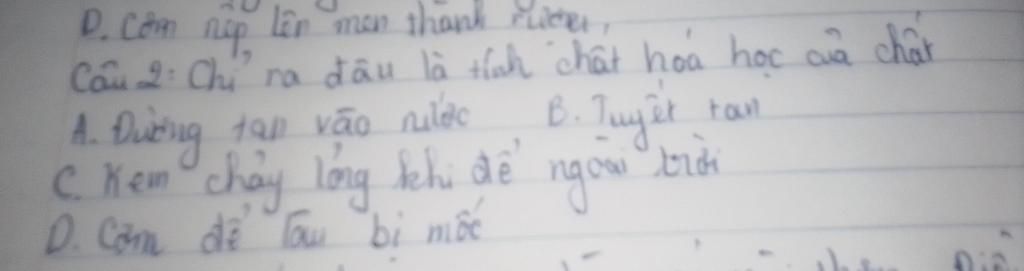 D. Cơm nếp lên men thành rượu,
Câu 2: Chỉ ra đâu là tính chất hoá học của chất
A. Đường tan vào nước B. Tuyết tan
C. Kem chảy lỏng khi để ngoài trời
D. Cơm để lâu bị mốc